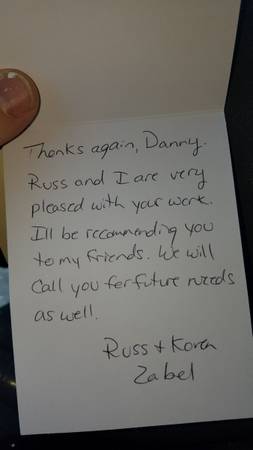 Thanks again, Danny.
Russ and I are very
pleased with your work.
I'll be recommending you
to my friends. We will
Call you for future needs
as well.
Russ + Karen
Zabel